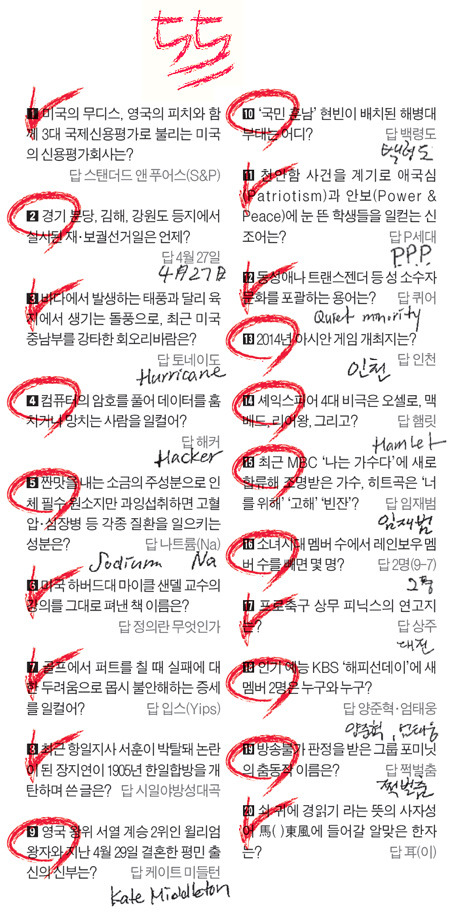 55
1 미국의 무디스, 영국의 피치와 함
께 3대 국제신용평가로 불리는 미국
의 신용평가회사는?
답 스탠더드 앤 푸어스(S&P)
2 경기 분당, 김해, 강원도 등지에서
실시된 재·보궐선거일은 언제?
답 4월 27일
4월 27일
3 바다에서 발생하는 태풍과 달리 육
지에서 생기는 돌풍으로, 최근 미국
중남부를 강타한 회오리바람은?
답 토네이도
Hurricane
4 컴퓨터의 암호를 풀어 데이터를 훔
치거나 망치는 사람을 일컬어?
답 해커
Hacker
5 짠맛을 내는 소금의 주성분으로 인
체 필수 원소지만 과잉섭취하면 고혈
압·심장병 등 각종 질환을 일으키는
성분은?
답 나트륨(Na)
Sodium Na
6 미국 하버드대 마이클 샌델 교수의
강의를 그대로 펴낸 책 이름은?
답 정의란 무엇인가
7 골프에서 퍼트를 칠 때 실패에 대
한 두려움으로 몹시 불안해하는 증세
를 일컬어?
답 입스(Yips)
8 최근 항일지사 서훈이 박탈돼 논란
이 된 장지연이 1905년 한일합방을 개
탄하며 쓴 글은?
답 시일야방성대곡
9 영국 왕위 서열 계승 2위인 윌리엄
왕자와 지난 4월 29일 결혼한 평민 출
신의 신부는?
답 케이트 미들턴
Kate Middleton
10 '국민 훈남' 현빈이 배치된 해병대
부대는 어디?
답 백령도
백령도
11 천안함 사건을 계기로 애국심
(Patriotism)과 안보(Power &
Peace)에 눈 뜬 학생들을 일컫는 신
조어는?
답 P세대
P.P.P.
12 동성애나 트랜스젠더 등 성 소수자
문화를 포괄하는 용어는?
답 퀴어
Quiet minority
13 2014년 아시안 게임 개최지는?
답 인천
인천
14 셰익스피어 4대 비극은 오셀로, 맥
베드, 리어왕, 그리고?
답 햄릿
Hamlet
15 최근 MBC '나는 가수다'에 새로
합류해 조명받은 가수, 히트곡은 '너
를 위해' '고해' '빈잔'?
답 임재범
임재범
16 소녀시대 멤버 수에서 레인보우 멤
버 수를 빼면 몇 명?
답 2명(9-7)
2명
17 프로축구 상무 피닉스의 연고지
는?
답 상주
대전
18 인기 예능 KBS '해피선데이'에 새
멤버 2명은 누구와 누구?
답 양준혁·엄태웅
양준혁, 엄태웅
19 방송불가 판정을 받은 그룹 포미닛
의 춤동작 이름은?
답 쩍벌춤
쩍벌춤
20 쇠 귀에 경읽기 라는 뜻의 사자성
어 馬( )東風에 들어갈 알맞은 한자
는?
답 耳(이)